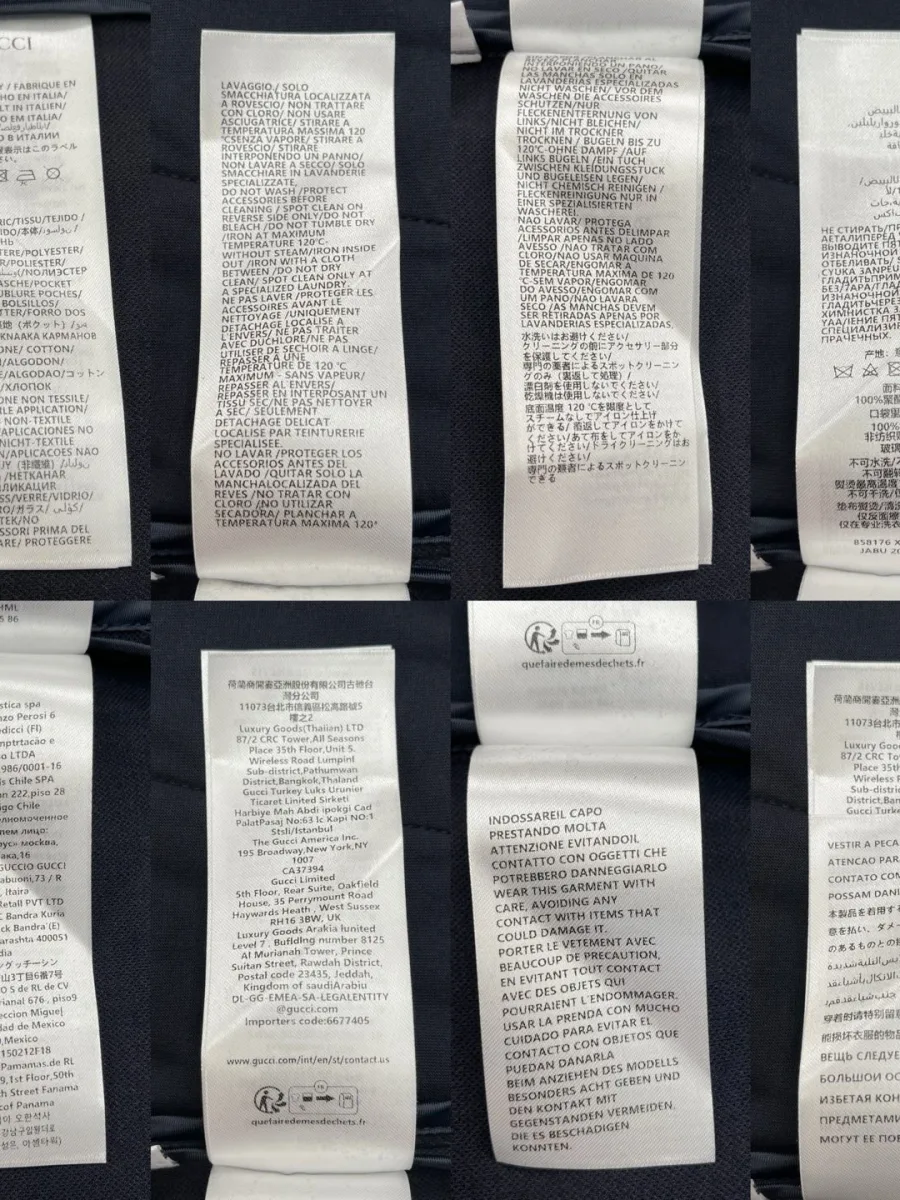 CCI
/ FABRIQUE EN
HO EN ITALIA/
LT IN ITALIEN/
O EM ITALIA/
О В ИТАЛИИ
表示はこのラベル
RIC/TISSU/TEJIDO/
TERE/POLYESTER/
R/POLIESTER/
/ПОЛИЭСТЕР
ASCHE/POCKET
UBLURE POCHES/
BOLSILLOS/
TTER/FORRO DOS
地（ポケット）/
KNAAKA КАРМАНОВ
ONE/ COTTON/
/ALGODON/
/ALGODAO/コットン
/ХЛОПОК
ONE NON TESSILE/
LE APPLICATION/
NON-TEXTILE
APLICACIONES NO
NICHT-TEXTILE
APLICACOES NAO
(非繊維)
/НЕТКАНАЯ
ЛИКАЦИЯ
SS/VERRE/VIDRIO/
RO/ガラス/
TEK/NO
SSORI PRIMA DEL
ARE/ PROTEGGERE
LAVAGGIO / SOLO
SMACCHIATURA LOCALIZZATA
A ROVESCIO/ NON TRATTARE
CON CLORO/ NON USARE
ASCIUGATRICE/ STIRARE A
TEMPERATURA MASSIMA 120
°CSENZA VAPORE/ STIRARE A
ROVESCIO / STIRARE
INTERPONENDO UN PANNO/
NON LAVARE A SECCO/ SOLO
SMACCHIARE IN LAVANDERIE
SPECIALIZZATE.
DO NOT WASH /PROTECT
ACCESSORIES BEFORE
CLEANING / SPOT CLEAN ON
REVERSE SIDE ONLY/DO NOT
BLEACH /DO NOT TUMBLE DRY
/IRON AT MAXIMUM
TEMPERATURE 120°C-
WITHOUT STEAM/IRON INSIDE
OUT /IRON WITH A CLOTH
BETWEEN /DO NOT DRY
CLEAN/ SPOT CLEAN ONLY AT
A SPECIALIZED LAUNDRY.
NE PAS LAVER /PROTEGER LES
ACCESSOIRES AVANT LE
NETTOYAGE /UNIQUEMENT
DETACHAGE LOCALISE A
L'ENVERS/ NE PAS TRAITER
AVEC DUCHLORE/NE PAS
UTILISER DE SECHOIR A LINGE/
REPASSER A UNE
TEMPERATURE DE 120 °C
MAXIMUM - SANS VAPEUR/
REPASSER AL ENVERS/
REPASSER EN INTERPOSANT UN
TISSU SEC/NE PAS NETTOYER
A SEC/ SEULEMENT
DETACHAGE DELICAT
LOCALISE PAR TEINTURERIE
SPECIALISEE.
NO LAVAR /PROTEGER LOS
ACCESORIOS ANTES DEL
LAVADO /QUITAR SOLO LA
MANCHALOCALIZADA DEL
REVES /NO TRATAR CON
CLORO /NO UTILIZAR
SECADORA/ PLANCHAR A
TEMPERATURA MAXIMA 120°
NO LAVAR EN SECO /QUITAR
LAS MANCHAS SOLO EN
LAVANDERIAS ESPECIALIZADAS
NICHT WASCHEN/ VOR DEM
WASCHEN DIE ACCESSOIRES
SCHUTZEN/NUR
FLECKENENTFERNUNG VON
LINKS/NICHT BLEICHEN/
NICHT IM TROCKNER
TROCKNEN / BUGELN BIS ZU
120°C-OHNE DAMPF /AUF
LINKS BUGELN /EIN TUCH
ZWISCHEN KLEIDUNGSSTUCK
UND BUGELEISEN LEGEN/
NICHT CHEMISCH REINIGEN /
FLECKENREINIGUNG NUR IN
EINER SPEZIALISIERTEN
WASCHEREI.
NAO LAVAR/ PROTEGA
ACESSORIOS ANTES DELIMPAR
/LIMPAR APENAS NO LADO
AVESSO /NAO TRATAR COM
CLORO/NAO USAR MAQUINA
DE SECAR/ENGOMAR A
TEMPERATURA MAXIMA DE 120
°C-SEM VAPOR/ENGOMAR
DO AVESSO/ENGOMAR COM
UM PANO/NAO LAVARA
SECO /AS MANCHAS DEVEM
SER RETIRADAS APENAS POR
LAVANDERIAS ESPECIALIZADAS.
水洗いはお避けください/
クリーニングの前にアクセサリー部分
を保護してください/
専門の業者によるスポットクリーニン
グのみ（裏返して処理）/
漂白剤を使用しないでください/
乾燥機は使用しないでください/
底面温度 120 ℃を限度として
スチームなしでアイロン仕上げ
ができる/ 裏返してアイロンをかけて
ください/あて布をしてアイロンをか
けてください/ドライクリーニングはお
避けください/
専門の業者によるスポットクリーニン
できる
НЕ СТИРАТЬ/
ВЫВОДИТЕ ПЯТ
ИЗНАНОЧНОЙ
ОТБЕЛИВАТЬ/
ХИМЧИСТКА
ПРАЧЕЧНЫХ.
产地：
面料
100%聚酯
口袋里
100%
非纺织
玻璃
不可水洗/
不可翻转
熨烫最高温度
不可干洗/
垫布熨烫/清洗
仅反面擦
仅在专业洗衣
858176 X
JABU 20
5 B6
stica spa
nzo Perosi 6
edicci (FI)
mpttrtacao e
o LTDA
986/0001-16
is Chile SPA
on 222,piso 28
igo Chile
лномоченное
лем лицо:
рус» москва,
ака,16
GUCCIO GUCCI
abuoni,73 / R
, Itaira
Retail PVT LTD
C Bandra Kuria
ck Bandra (E)
arashta 400051
dia
ングッチーシン
山3丁目6番7号
O S de RL de CV
rianal 676 , piso9
eccion Miguel
dad de Mexico
0,Mexico
150212F18
Pamamas.de RL
9,1st Floor,50th
th Street Fanama
cof Panama
이 오한석사
강남구압평다로
섬은, 아셀타워)
荷蘭商開雲亞洲股份有限公司古驰台
灣分公司
11073台北市信義區松高路號5
樓之2
Luxury Goods(Thaiian) LTD
87/2 CRC Tower,All Seasons
Place 35th Floor,Unit 5.
Wireless Road Lumpinl
Sub-district,Pathumwan
District,Bangkok,Thaland
Gucci Turkey Luks Urunier
Ticaret Limited Sirketi
Harbiye Mah Abdi ipokgi Cad
PalatPasaj No:63 Ic Kapi NO:1
Stsli/Istanbul
The Gucci America Inc.
195 Broadway,New York,NY
1007
CA37394
Gucci Limited
5th Floor, Rear Suite, Oakfield
House, 35 Perrymount Road
Haywards Heath , West Sussex
RH16 3BW, UK
Luxury Goods Arakia lunited
Level 7 . Bufidlng number 8125
Al Murianah Tower, Prince
Suitan Street, Rawdah District,
Postal code 23435, Jeddah,
Kingdom of saudiArabiu
DL-GG-EMEA-SA-LEGALENTITY
@gucci.com
Importers code:6677405
www.gucci.com/int/en/st/contact.us
FR
quefairedemesdechets.fr
FR
quefairedemesdechets.fr
INDOSSAREIL CAPO
PRESTANDO MOLTA
ATTENZIONE EVITANDOIL
CONTATTO CON OGGETTI CHE
POTREBBERO DANNEGGIARLO
WEAR THIS GARMENT WITH
CARE, AVOIDING ANY
CONTACT WITH ITEMS THAT
COULD DAMAGE IT.
PORTER LE VETEMENT AVEC
BEAUCOUP DE PRECAUTION,
EN EVITANT TOUT CONTACT
AVEC DES OBJETS QUI
POURRAIENT L'ENDOMMAGER.
USAR LA PRENDA CON MUCHO
CUIDADO PARA EVITAR EL
CONTACTO CON OBJETOS QUE
PUEDAN DANARLA
BEIM ANZIEHEN DES MODELLS
BESONDERS ACHT GEBEN UND
DEN KONTAKT MIT
GEGENSTANDEN VERMEIDEN.
DIE ES BESCHADIGEN
KONNTEN.
荷蘭商開雲亞
灣
11073台北市
Luxury Goo
87/2 CRC T
Place 35th
Wireless R
Sub-distri
District,Ban
Gucci Turke
VESTIR A PECA
ATENCAO PAR
CONTATO COM
POSSAM DANI
本製品を着用する
意を払い、ダメー
のあるものとの接
穿着时请特别留意
能损坏衣服的物品
ВЕЩЬ СЛЕДУЕ
БОЛЬШОЙ ОС
ИЗБЕГАЯ КОН
ПРЕДМЕТАМИ
МОГУТ ЕЕ ПОВ